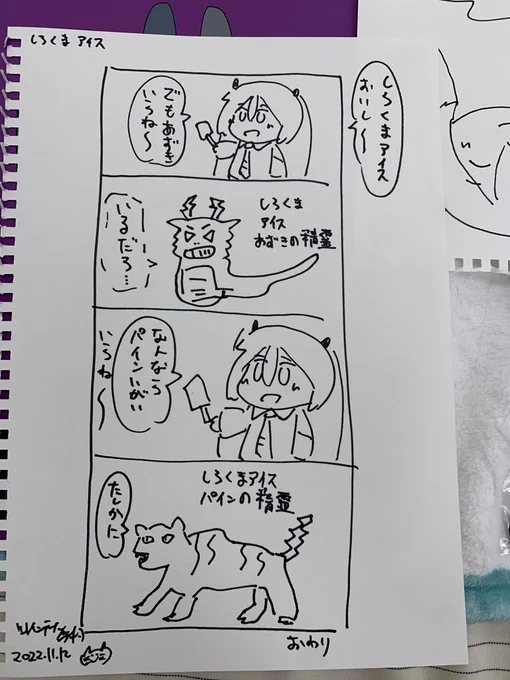 しろくまアイス
しろくまアイス
おいし〜
でもあずき
いらね〜
しろくま
アイス
あずきの精霊
いるだろ…
なんなら
パインいがい
いらね〜
しろくまアイス
パインの精霊
たしかに
おわり
2022.11.12